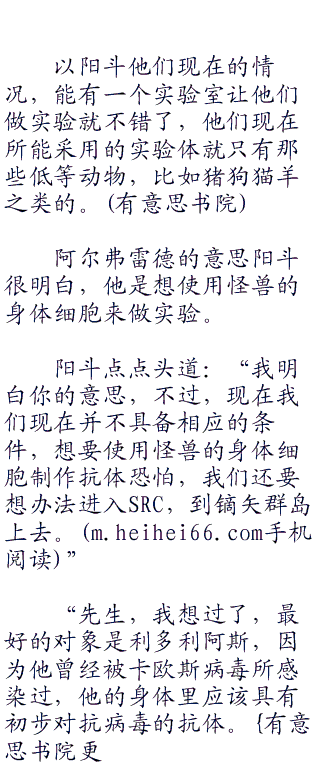 以阳斗他们现在的情
况，能有一个实验室让他们
做实验就不错了，他们现在
所能采用的实验体就只有那
些低等动物，比如猪狗猫羊
之类的。(有意思书院)
阿尔弗雷德的意思阳斗
很明白，他是想使用怪兽的
身体细胞来做实验。
阳斗点点头道：“我明
白你的意思，不过，现在我
们现在并不具备相应的条
件，想要使用怪兽的身体细
胞制作抗体恐怕，我们还要
想办法进入SRC，到镝矢群岛
上去。(m.heihei66.com手机
阅读)”
“先生，我想过了，最
好的对象是利多利阿斯，因
为他曾经被卡欧斯病毒所感
染过，他的身体里应该具有
初步对抗病毒的抗体。{有意
思书院更